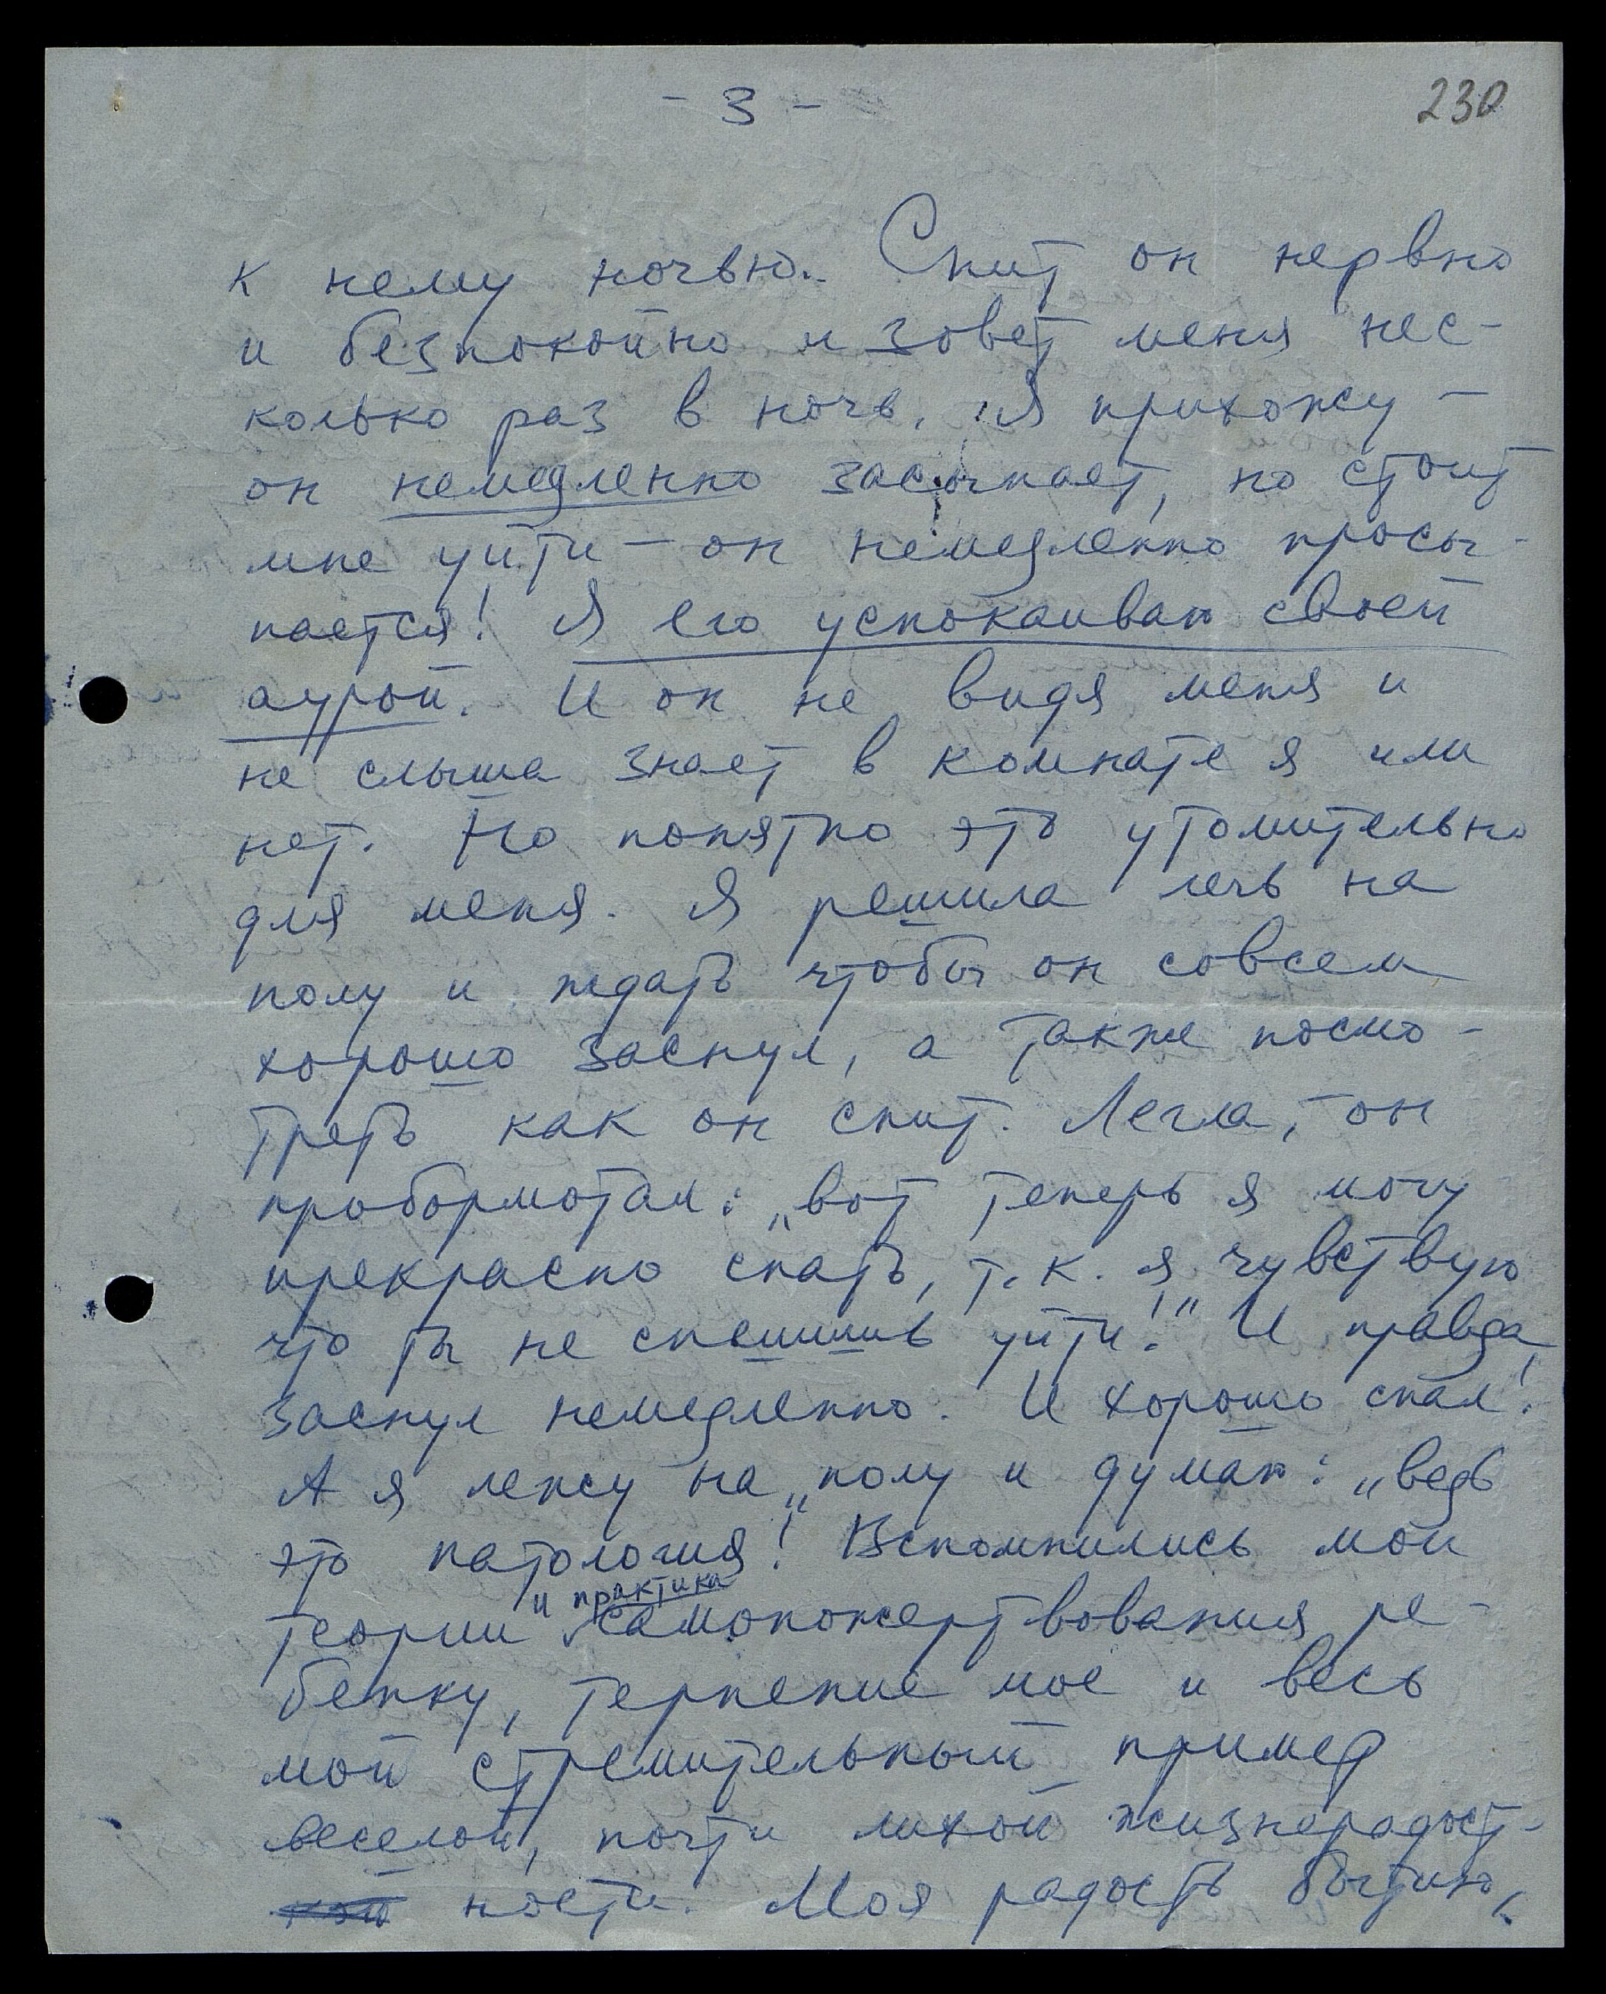 - 3 -
230
к нему ночью. Спит он нервно
и безпокойно и зовет меня нес-
колько раз в ночь. Я прихожу —
он немедленно засыпает, но стоит
мне уйти — он немедленно просы-
пается! Я его успокаиваю своей
аурой. И он не видя меня и
не слыша знает в комнате я или
нет. Но понятно это утомительно
для меня. Я решила лечь на
полу и ждать чтобы он совсем
хорошо заснул, а также посмо-
треть как он спит. Легла, он
пробормотал: „вот теперь я могу
прекрасно спать, т.к. я чувствую
что ты не спешишь уйти!" И правда
заснул немедленно. И хорошо спал!
А я лежу на „полу и думаю: „ведь
это патология! Вспомнились мои
и практика
теории самопожертвования ре-
бенку, терпение мое и весь
мой стремительный пример
веселой, почти лихой жизнерадост-
ности. Моя радость бытию,